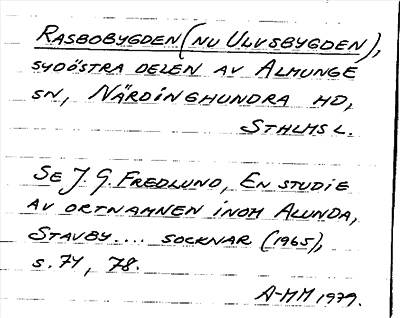 RASBOBYGDEN (NU ULVSBYGDEN),
SYDÖSTRA DELEN AV ALMUNGE
SN, NÄRDINGHUNDRA HD,
STHLMS L.
SE J. G. FREDLUND, EN STUDIE
AV ORTNAMNEN INOM ALUNDA,
STAVBY.... SOCKNAR (1965),
S. 74, 78.
A-MM 1979.